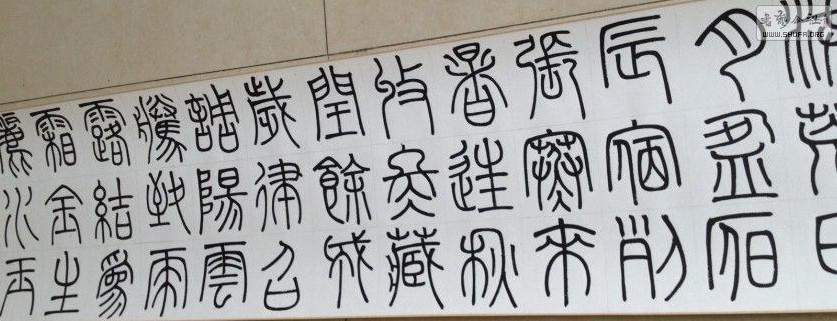 洪荒日
月盈昃
辰宿列
張寒來
暑往秋
收冬藏
閏餘成
歲律召
調陽雲
騰致雨
露結為
霜金生
麗水玉
WWW.SHUFA.ORG